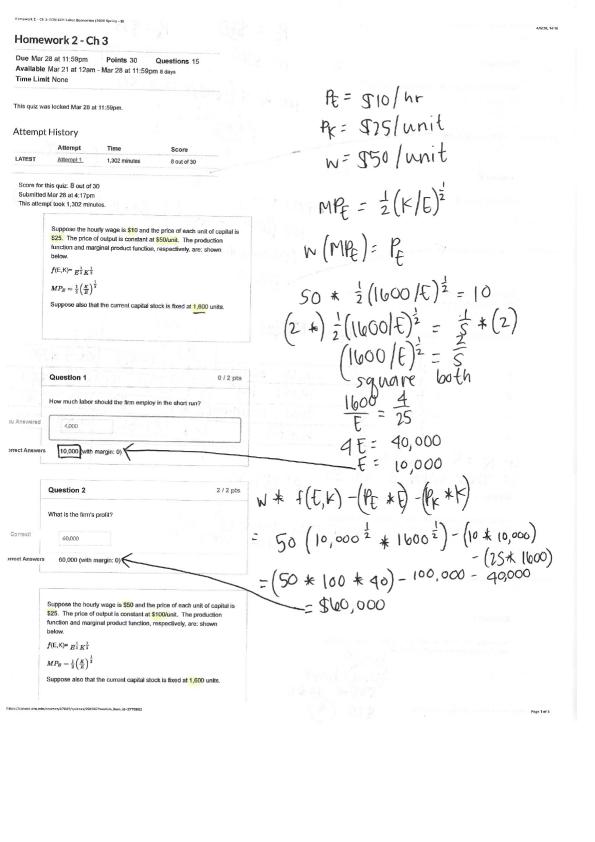 Homework 2 - Ch 3
Due Mar 28 at 11:59pm Points 30 Questions 15
Available Mar 21 at 12am - Mar 28 at 11:59pm 8 days
Time Limit None
This quiz was locked Mar 28 at 11:59pm.
Attempt History
Attempt Time Score
LATEST Attempt 1 1,302 minutes 8 out of 30
Score for this quiz: 8 out of 30
Submitted Mar 28 at 4:17pm
This attempt took 1,302 minutes.
Suppose the hourly wage is $10 and the price of each unit of capital is
$25. The price of output is constant at $50/unit. The production
function and marginal product function, respectively, are: shown
below.
f(E,K)= E^½ K^½
MP_E = ½(K/E)^½
Suppose also that the current capital stock is fixed at 1,600 units.
Question 1 0 / 2 pts
How much labor should the firm employ in the short run?
Answered
4,000
Answers 10,000 (with margin: 0)
Question 2 2 / 2 pts
What is the firm's profit?
Correct!
60,000
Answers 60,000 (with margin: 0)
Suppose the hourly wage is $50 and the price of each unit of capital is
$25. The price of output is constant at $100/unit. The production
function and marginal product function, respectively, are: shown
below.
Suppose also that the current capital stock is fixed at 1,600 units.
Page 1 of 5
P_E = $10/hr
P_K = $25/unit
w = $50/unit
MP_E = ½(K/E)^½
w(MP_E) = P_E
50 * ½(1600/E)^½ = 10
(2 *) ½(1600/E)^½ = 1/5 * (2)
(1600/E)^½ = 2/5
square both
1600/E = 4/25
4E = 40,000
E = 10,000
w * f(E,K) - (P_E * E) - (P_K * K)
= 50 (10,000^½ * 1600^½) - (10 * 10,000)
- (25 * 1600)
= (50 * 100 * 40) - 100,000 - 40,000
= $60,000